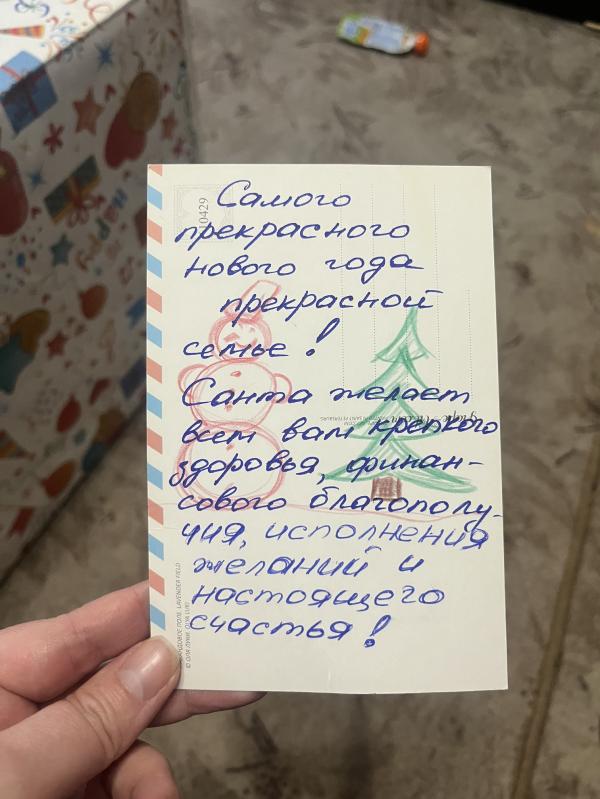 Самого
прекрасного
нового года
прекрасной
семье!
Санта желает
всем вам крепкого
здоровья, финан-
сового благополу-
чия, исполнения
желаний и
настоящего
счастья!
0429
LAVENDER FIELD